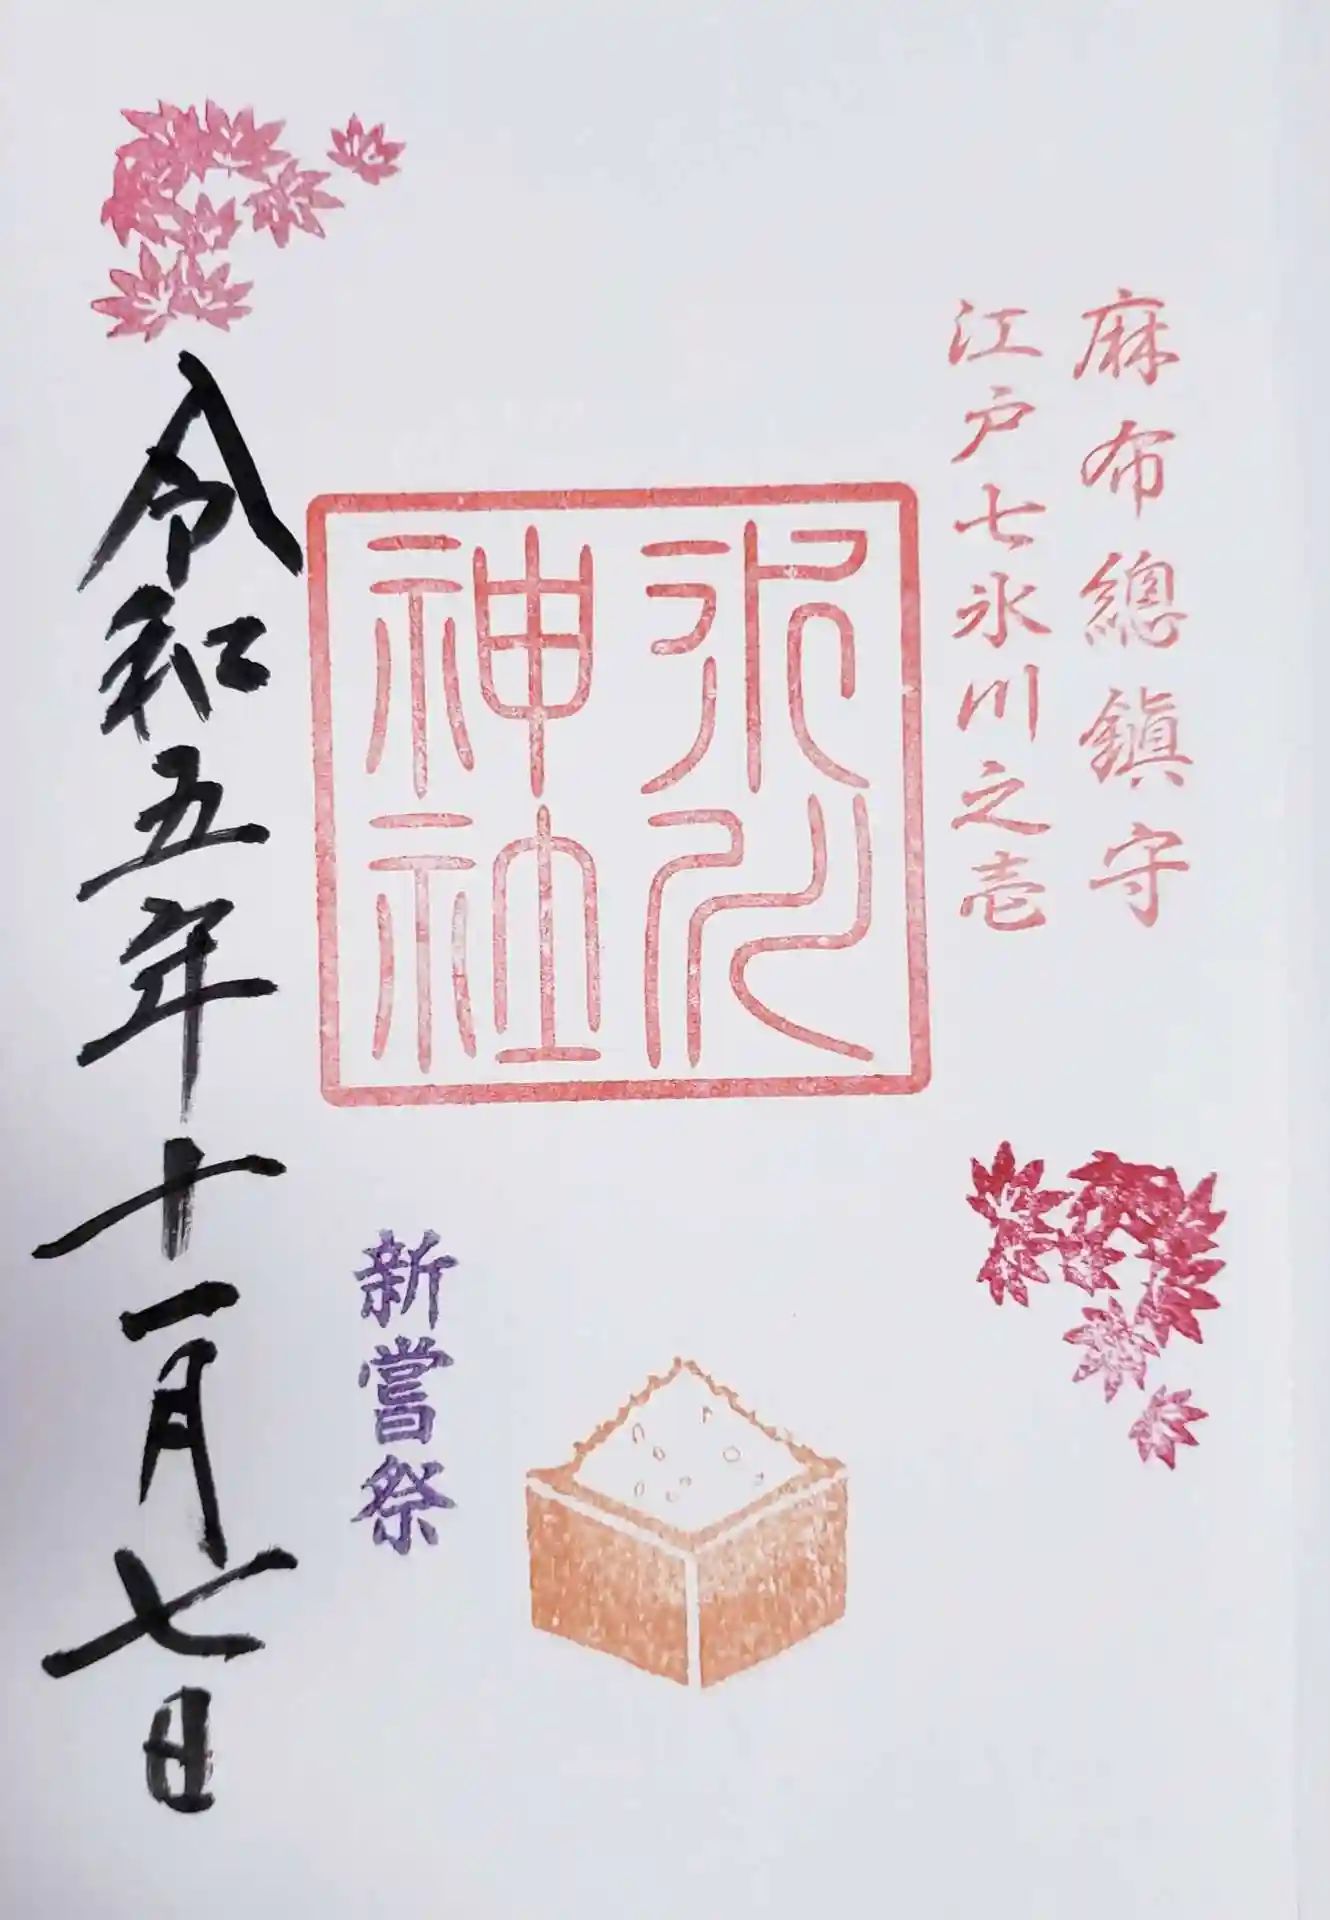 麻布總鎭守
江戸七氷川之壱
氷川
神社
新嘗祭
令和五年十一月七日